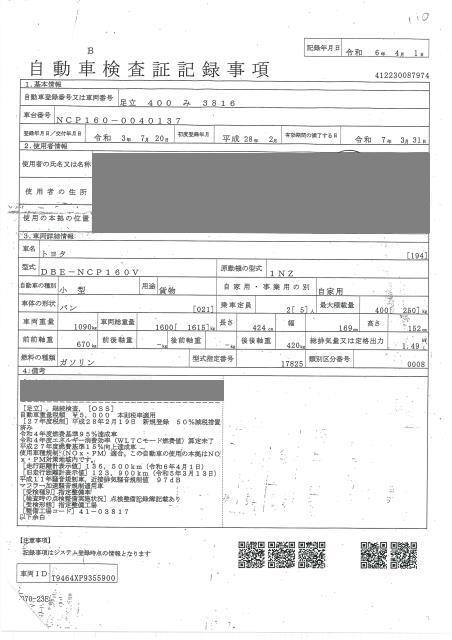 B
記録年月日 令和 6年 4月 1日
自動車検査証記録事項
412230087974
1.基本情報
自動車登録番号又は車両番号 足立 400 み 3816
車台番号 NCP160-0040137
登録年月日/交付年月日 令和 3年 7月 20日 初度登録年月 平成 28年 2月 有効期間の満了する日 令和 7年 3月 31日
2.使用者情報
使用者の氏名又は名称
使用者の住所
使用の本拠の位置
3.車両詳細情報
車名 トヨタ [194]
型式 DBE-NCP160V 原動機の型式 1NZ
自動車の種別 小型 用途 貨物 自家用・事業用の別 自家用
車体の形状 バン [021] 乗車定員 2[ 5]人 最大積載量 400[ 250]kg
車両重量 1090kg 車両総重量 1600[ 1615]kg 長さ 424cm 幅 169cm 高さ 152cm
前前軸重 670kg 前後軸重 -kg 後前軸重 -kg 後後軸重 420kg 総排気量又は定格出力 1.49L
燃料の種類 ガソリン 型式指定番号 17825 類別区分番号 0008
4.備考
[足立],継続検査,[OSS]
自動車重量税額 ¥5,000 本則税率適用
[27年度税制]平成28年2月19日 新規登録 50%減税措置
済み
令和4年度燃費基準95%達成車
令和4年度エネルギー消費効率(WLTCモード燃費値)算定未了
平成27年度燃費基準15%向上達成車
使用車種規制(NOx・PM)適合,この自動車の使用の本拠はNO
x・PM対策地域内です。
[走行距離計表示値]136,500km(令和6年4月1日)
[旧走行距離計表示値]123,900km(令和5年3月13日)
平成11年騒音規制車,近接排気騒音規制値 97dB
マフラー加速騒音規制適用車
[受検種別]指定整備車
[検査時の点検整備実施状況]点検整備記録簿記載あり
[受検形態]指定整備工場
[整備工場コード]41-03817
以下余白
[注意事項]
記録事項はシステム登録時点の情報となります
車両ID T9464XP9355900